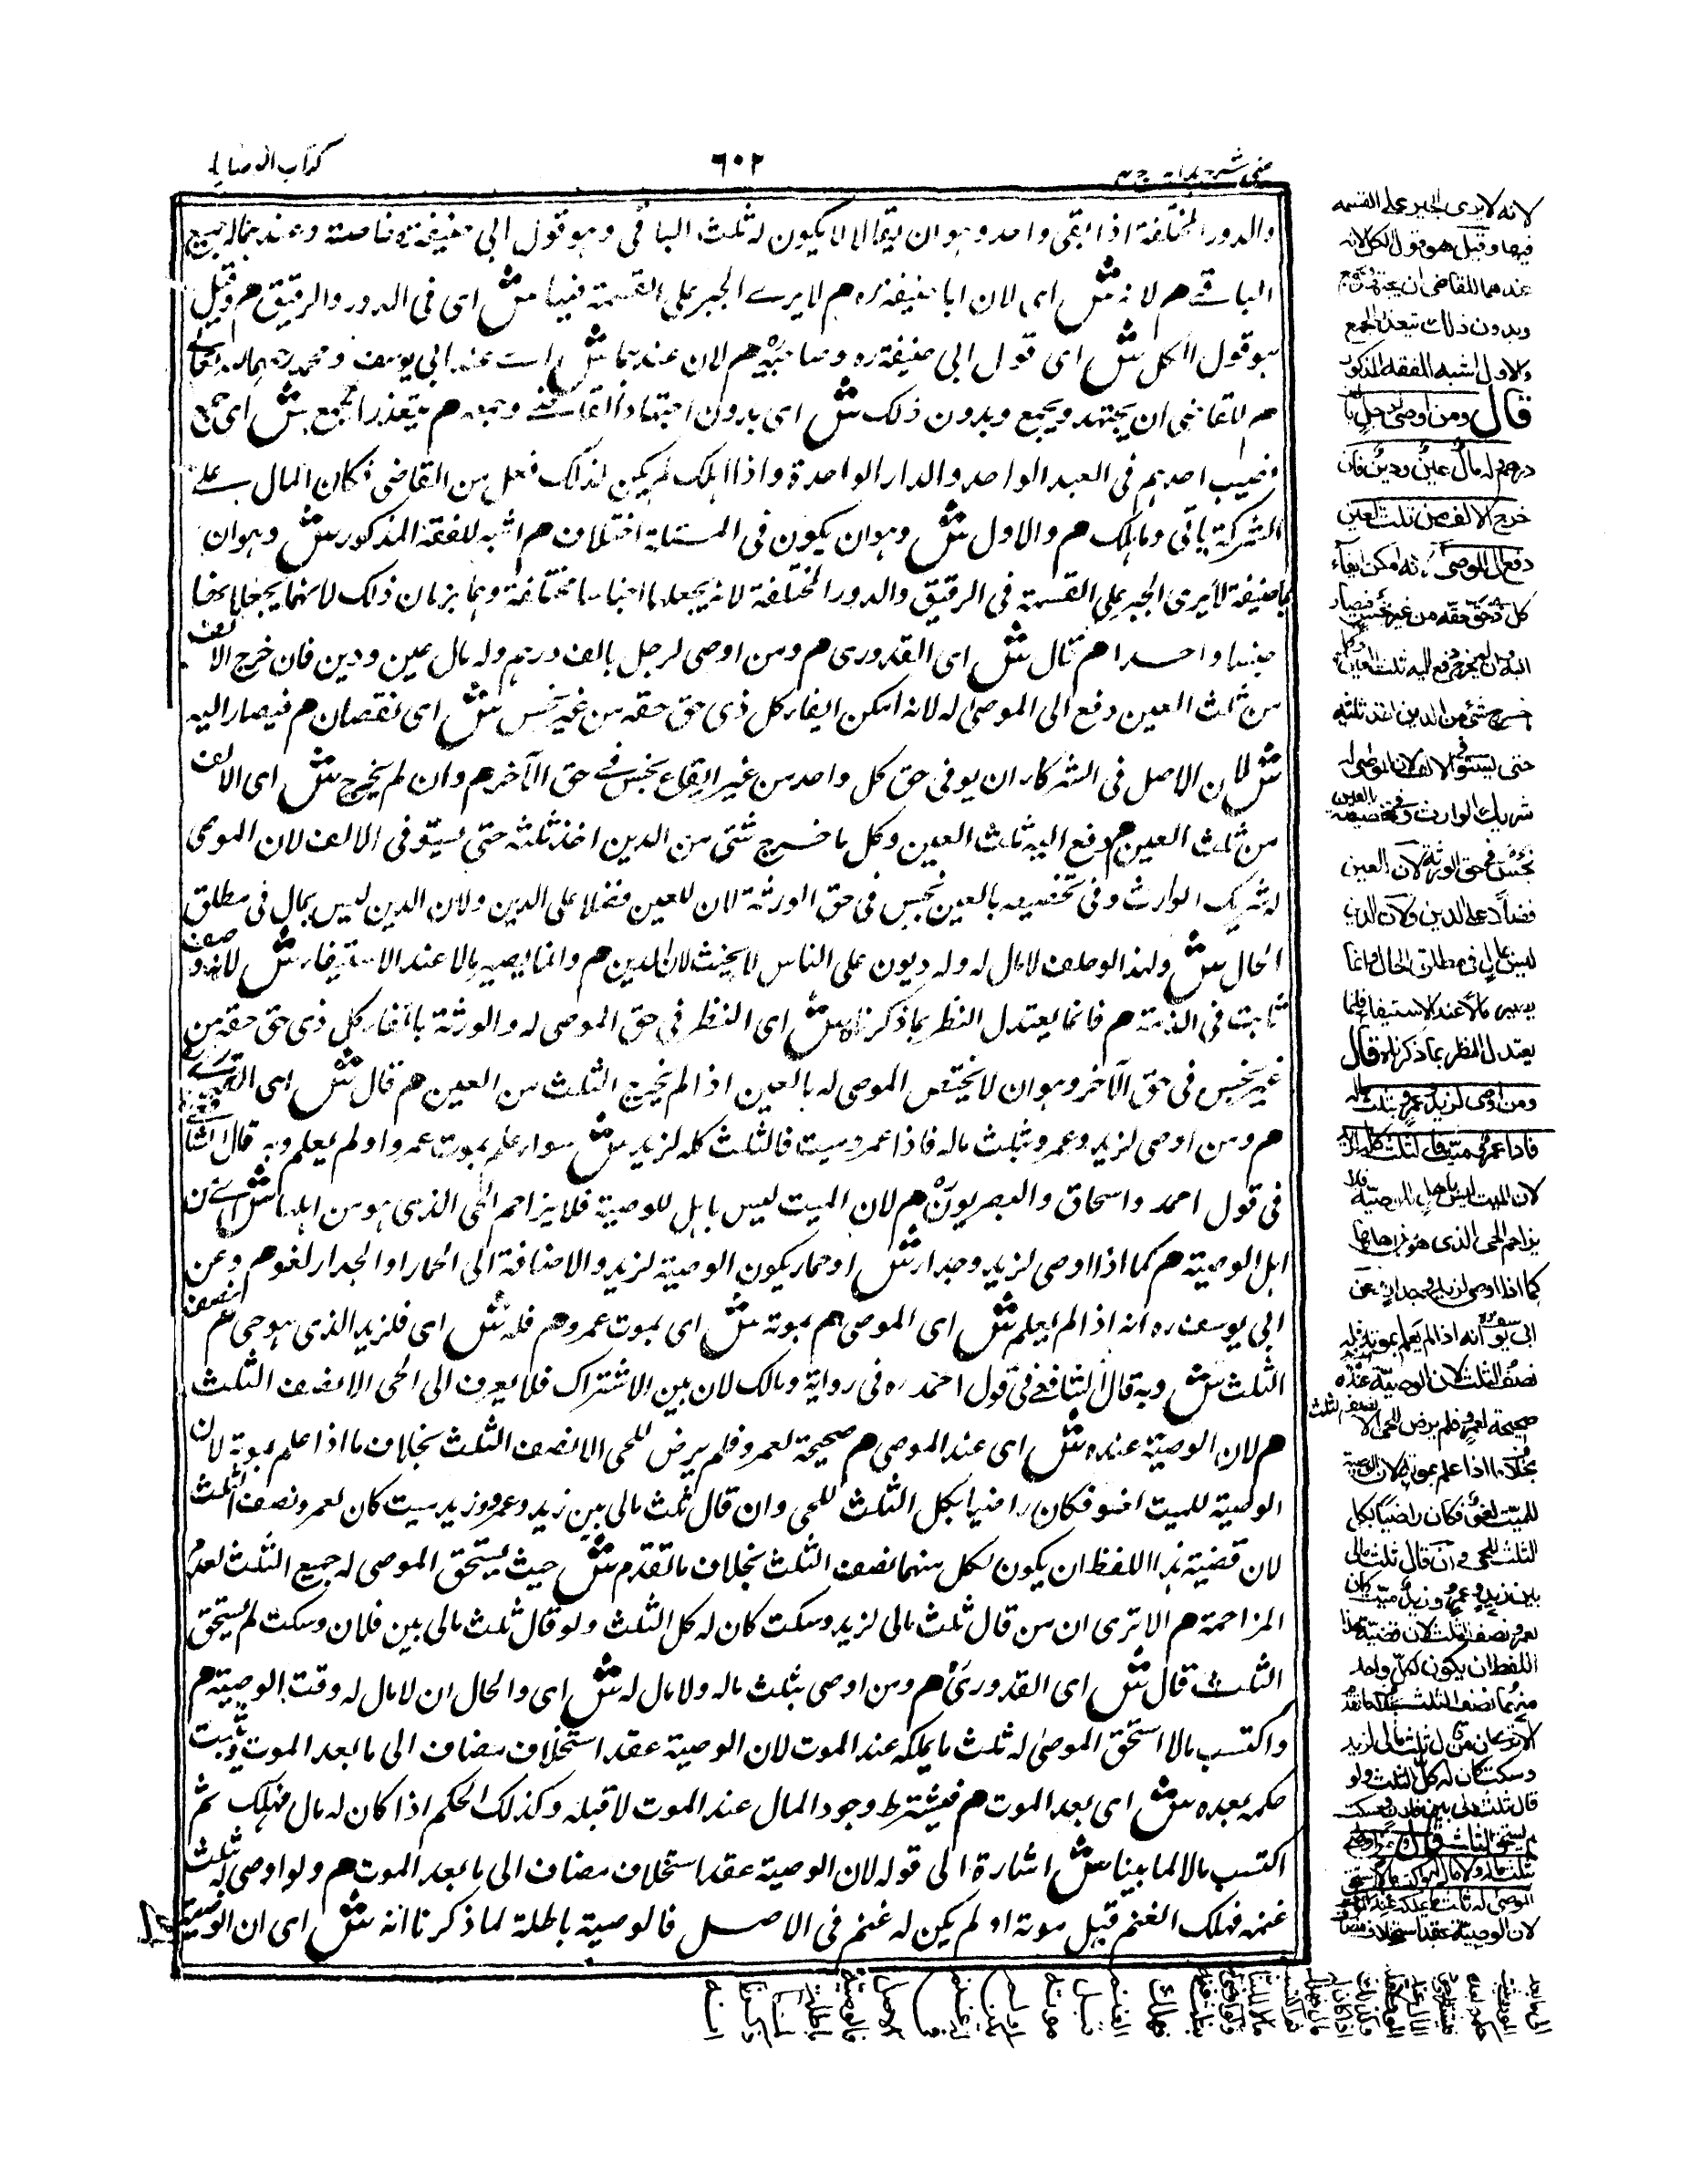 كتاب الوصايا
٦٠٢
والدور المختلفة اذا بقى واحد وهو ان يقال لا يكون له ثلث الباقى وهو قول ابى حنيفة خاصة وعندهما له جميع
الباقى هم لانه ش اى لان ابا حنيفة ره هم لا يرى الجبر على القسمة فيها ش اى فى الدور والرقيق هم وقيل
هو قول الكل ش اى قول ابى حنيفة ره وصاحبيه هم لان عندهما ش اى عند ابى يوسف ومحمد
هم للقاضى ان يجتهد ويجمع وبدون ذلك ش اى بدون اجتهاد القاضى وجمعه هم يتعذر الجمع ش اى جمع
نصيب احدهم فى العبد الواحد والدار الواحدة واذا هلك لم يكن لذلك فعل من القاضى فكان المال على
الشركة باقى وما هلك هم والاول ش وهو ان يكون فى المسئلة اختلاف هم اشبه للفقه المذكور ش وهو ان
ابا حنيفة لا يرى الجبر على القسمة فى الرقيق والدور المختلفة لانه يجعلها اجناسا مختلفة وهما يريان ذلك لانهما يجعلانها
جنسا واحدا هم قال ش اى القدورى هم ومن اوصى لرجل بالف درهم وله مال عين ودين فان خرج الالف
من ثلث العين دفع الى الموصى له لانه امكن ايفاء كل ذى حق حقه من غير بخس ش اى نقصان هم فيصار اليه
ش لان الاصل فى الشركاء ان يوفى حق كل واحد من غير ايقاع بخس فى حق الآخر هم وان لم يخرج ش اى الالف
من ثلث العين هم دفع اليه ثلث العين وكل ما خرج شئ من الدين اخذ ثلثه حتى يستوفى الالف لان الموصى
له شريك الوارث وفى تخصيصه بالعين بخس فى حق الورثة لان للعين فضلا على الدين ولان الدين ليس بمال فى مطلق
الحال ش ولهذا لو حلف لا مال له وله ديون على الناس لا يحنث لان الدين هم وانما يصير مالا عند الاستيفاء ش لانه وصف
ثابت فى الذمة هم فانما يعتدل النظر بما ذكرناه ش اى النظر فى حق الموصى له والورثة بايفاء كل ذى حق حقه من
غير بخس فى حق الآخر وهو ان لا يختص الموصى له بالعين اذا لم يخرج الثلث من العين هم قال ش اى القدورى
هم ومن اوصى لزيد وعمرو بثلث ماله فاذا عمرو ميت فالثلث كله لزيد ش سواء علم بموت عمرو او لم يعلم وبه قال الشافعى
فى قول احمد واسحاق والبصريون هم لان الميت ليس باهل للوصية فلا يزاحم الحى الذى هو من اهلها ش اى من
اهل الوصية هم كما اذا اوصى لزيد وجدار ش او حمار يكون الوصية لزيد والاضافة الى الحمار او الجدار لغو هم وعن
ابى يوسف ره انه اذا لم يعلم ش اى الموصى هم بموته ش اى بموت عمرو هم فله ش اى فلزيد الذى هو حى هم نصف
الثلث ش وبه قال الشافعى فى قول احمد ره فى رواية ومالك لان بين الاشتراك فلا يصرف الى الحى الا نصف الثلث
هم لان الوصية عنده ش اى عند الموصى هم صحيحة لعمرو فلم يرض للحى الا نصف الثلث بخلاف ما اذا علم بموته لان
الوصية للميت لغو فكان راضيا بكل الثلث للحى وان قال ثلث مالى بين زيد وعمرو وزيد ميت كان لعمرو نصف الثلث
لان قضية هذا اللفظ ان يكون لكل منهما نصف الثلث بخلاف ما تقدم ش حيث يستحق الموصى له جميع الثلث لعدم
المزاحمة هم الا ترى ان من قال ثلث مالى لزيد وسكت كان له كل الثلث ولو قال ثلث مالى بين فلان وسكت لم يستحق
الثلث قال ش اى القدورى هم ومن اوصى بثلث ماله ولا مال له ش اى والحال ان لا مال له وقت الوصية هم
واكتسب مالا استحق الموصى له ثلث ما يملكه عند الموت لان الوصية عقد استخلاف مضاف الى ما بعد الموت ويثبت
حكمه بعده ش اى بعد الموت هم فيشترط وجود المال عند الموت لا قبله وكذلك الحكم اذا كان له مال فهلك ثم
اكتسب مالا لما بينا ش اشارة الى قوله لان الوصية عقد استخلاف مضاف الى ما بعد الموت هم ولو اوصى له بثلث
غنمه فهلك الغنم قبل موته او لم يكن له غنم فى الاصل فالوصية باطلة لما ذكرنا انه ش اى ان الوصية
لانه لا يرى الجبر على القسمة
فيها وقيل هو قول الكل لانه
عندهما للقاضى ان يجتهد ويجمع
وبدون ذلك يتعذر الجمع
والاول اشبه للفقه المذكور
قال ومن اوصى لرجل بالف
درهم وله مال عين ودين فان
خرج الالف من ثلث العين
دفع الى الموصى له لانه امكن ايفاء
كل ذى حق حقه من غير بخس فيصار
اليه وان لم يخرج دفع اليه ثلث العين وكلما
خرج شئ من الدين اخذ ثلثه
حتى يستوفى الالف لان الموصى له
شريك الوارث وفى تخصيصه بالعين
بخس فى حق الورثة لان العين
فضلا على الدين ولان الدين
ليس بمال فى مطلق الحال وانما
يصير مالا عند الاستيفاء فانما
يعتدل النظر بما ذكرناه قال
ومن اوصى لزيد وعمرو بثلث ماله
فاذا عمرو ميت فالثلث كله لزيد
لان الميت ليس باهل للوصية فلا
يزاحم الحى الذى هو من اهلها
كما اذا اوصى لزيد وجدار وعن
ابى يوسف ره انه اذا لم يعلم بموته فله
نصف الثلث لان الوصية عنده
صحيحة لعمرو فلم يرض للحى الا نصف الثلث
بخلاف ما اذا علم بموته لان الوصية
للميت لغو فكان راضيا بكل
الثلث للحى وان قال ثلث مالى
بين زيد وعمرو وزيد ميت كان
لعمرو نصف الثلث لان قضية هذا
اللفظ ان يكون لكل واحد
منهما نصف الثلث بخلاف ما تقدم
الا ترى ان من قال ثلث مالى لزيد
وسكت كان له كل الثلث ولو
قال ثلث مالى بين فلان وسكت
لم يستحق الثلث قال ومن اوصى
بثلث ماله ولا مال له واكتسب مالا استحق
الموصى له ثلث ما يملكه عند الموت
لان الوصية عقد استخلاف مضاف